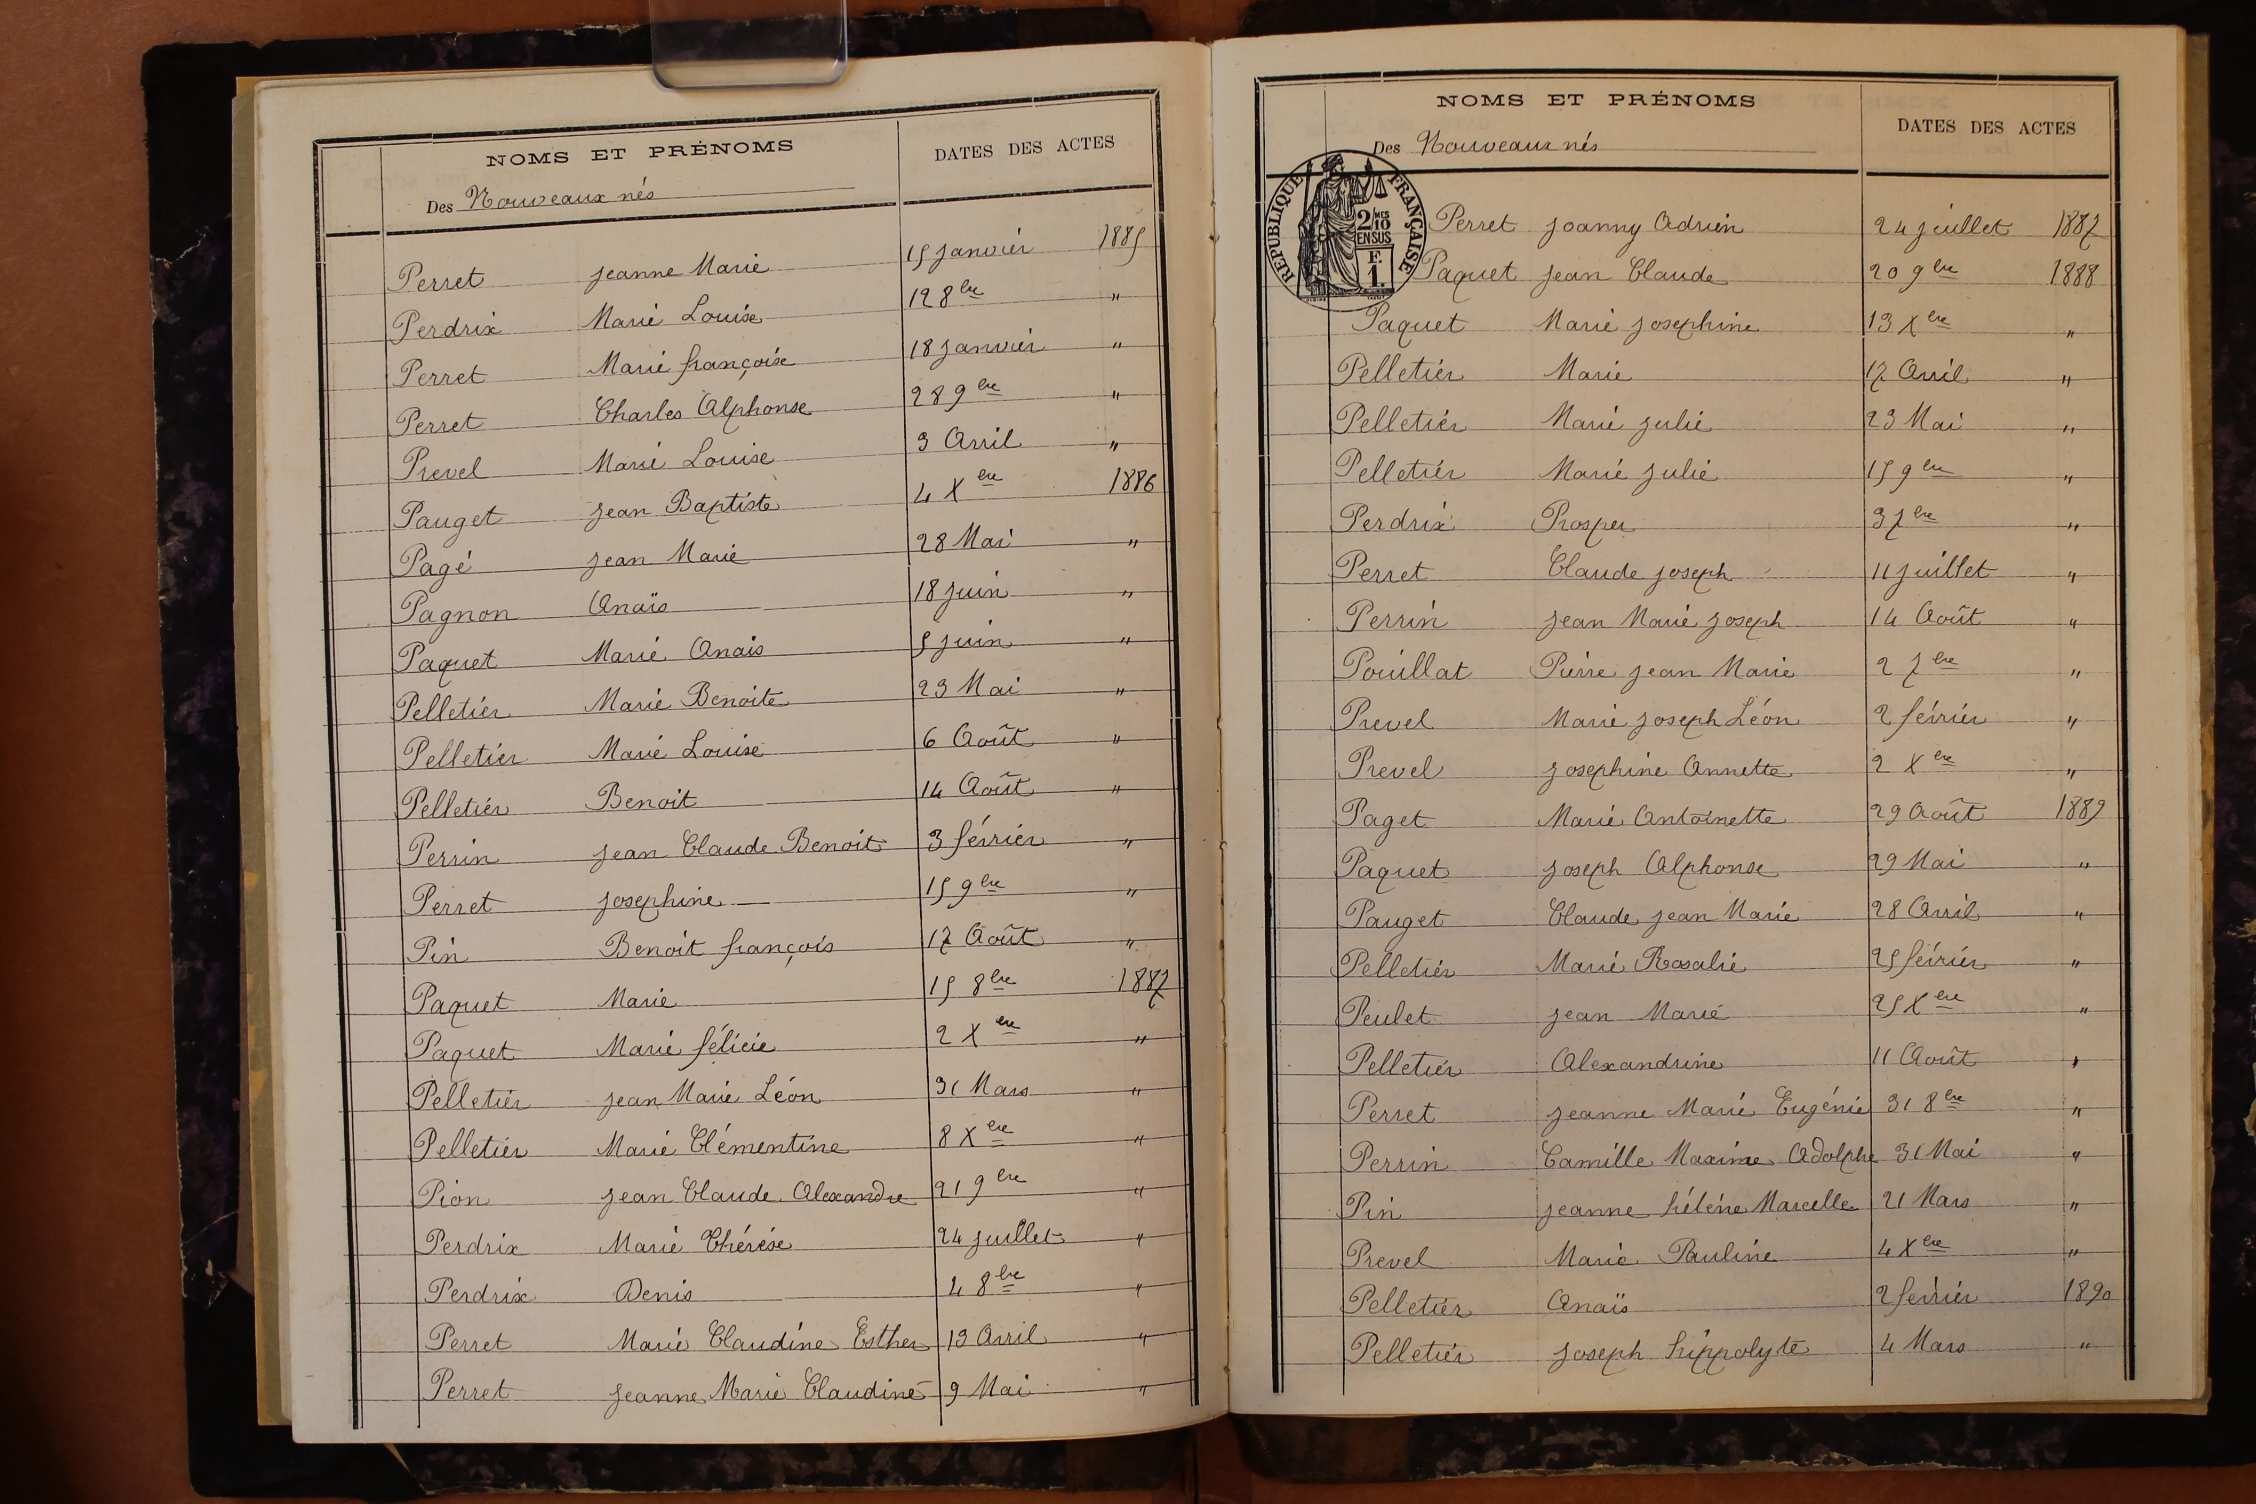 NOMS ET PRÉNOMS
DATES DES ACTES
Des Nouveaux nés
Perret Jeanne Marie 15 Janvier 1885
Perdrix Marie Louise 12 8bre "
Perret Marie françoise 18 Janvier "
Perret Charles Alphonse 28 9bre "
Prevel Marie Louise 3 Avril "
Pauget Jean Baptiste 4 Xbre 1886
Pagé Jean Marie 28 Mai "
Pagnon Anaïs 18 Juin "
Paquet Marie Anais 5 Juin "
Pelletier Marie Benoite 23 Mai "
Pelletier Marie Louise 6 Août "
Pelletier Benoit 14 Août "
Perrin Jean Claude Benoit 3 février "
Perret Josephine 15 9bre "
Pin Benoit françois 17 Août "
Paquet Marie 15 8bre 1887
Paquet Marie félicie 2 Xbre "
Pelletier Jean Marie Léon 31 Mars "
Pelletier Marie Clémentine 8 Xbre "
Pion Jean Claude Alexandre 21 9bre "
Perdrix Marie Thérèse 24 Juillet "
Perdrix Denis 4 8bre "
Perret Marie Claudine Esther 13 Avril "
Perret Jeanne Marie Claudine 9 Mai "
NOMS ET PRÉNOMS
DATES DES ACTES
Des Nouveaux nés
RÉPUBLIQUE FRANÇAISE
2/10 MES
EN SUS
F.
1.
Perret Joanny Adrien 24 Juillet 1887
Paquet Jean Claude 20 9bre 1888
Paquet Marie Josephine 13 Xbre "
Pelletier Marie 17 Avril "
Pelletier Marie Julie 23 Mai "
Pelletier Marie Julie 15 9bre "
Perdrix Prosper 3 7bre "
Perret Claude Joseph 11 Juillet "
Perrin Jean Marie Joseph 14 Août "
Pouillat Pierre Jean Marie 2 7bre "
Prevel Marie Joseph Léon 2 février "
Prevel Josephine Annette 2 Xbre "
Paget Marie Antoinette 29 Août 1889
Paquet Joseph Alphonse 29 Mai "
Pauget Claude Jean Marie 28 Avril "
Pelletier Marie Rosalie 25 février "
Peulet Jean Marie 25 Xbre "
Pelletier Alexandrine 11 Août "
Perret Jeanne Marie Eugénie 31 8bre "
Perrin Camille Maxime Adolphe 31 Mai "
Pin Jeanne hélène Marcelle 21 Mars "
Prevel Marie Pauline 4 Xbre "
Pelletier Anaïs 2 février 1890
Pelletier Joseph hippolyte 4 Mars "